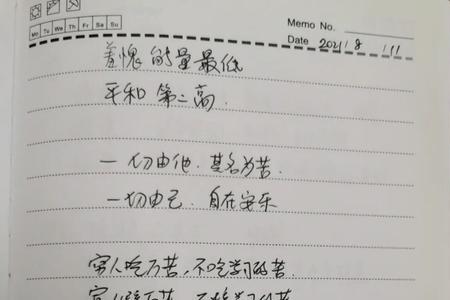 Memo No.
Mo Tu We Th Fr Sa Su
Date 2021 / 8 / 11
羞愧能量最低
平和第二高.
一切由他.其名为苦.
一切由己.自在安乐
穷人吃万苦,不吃学习的苦.